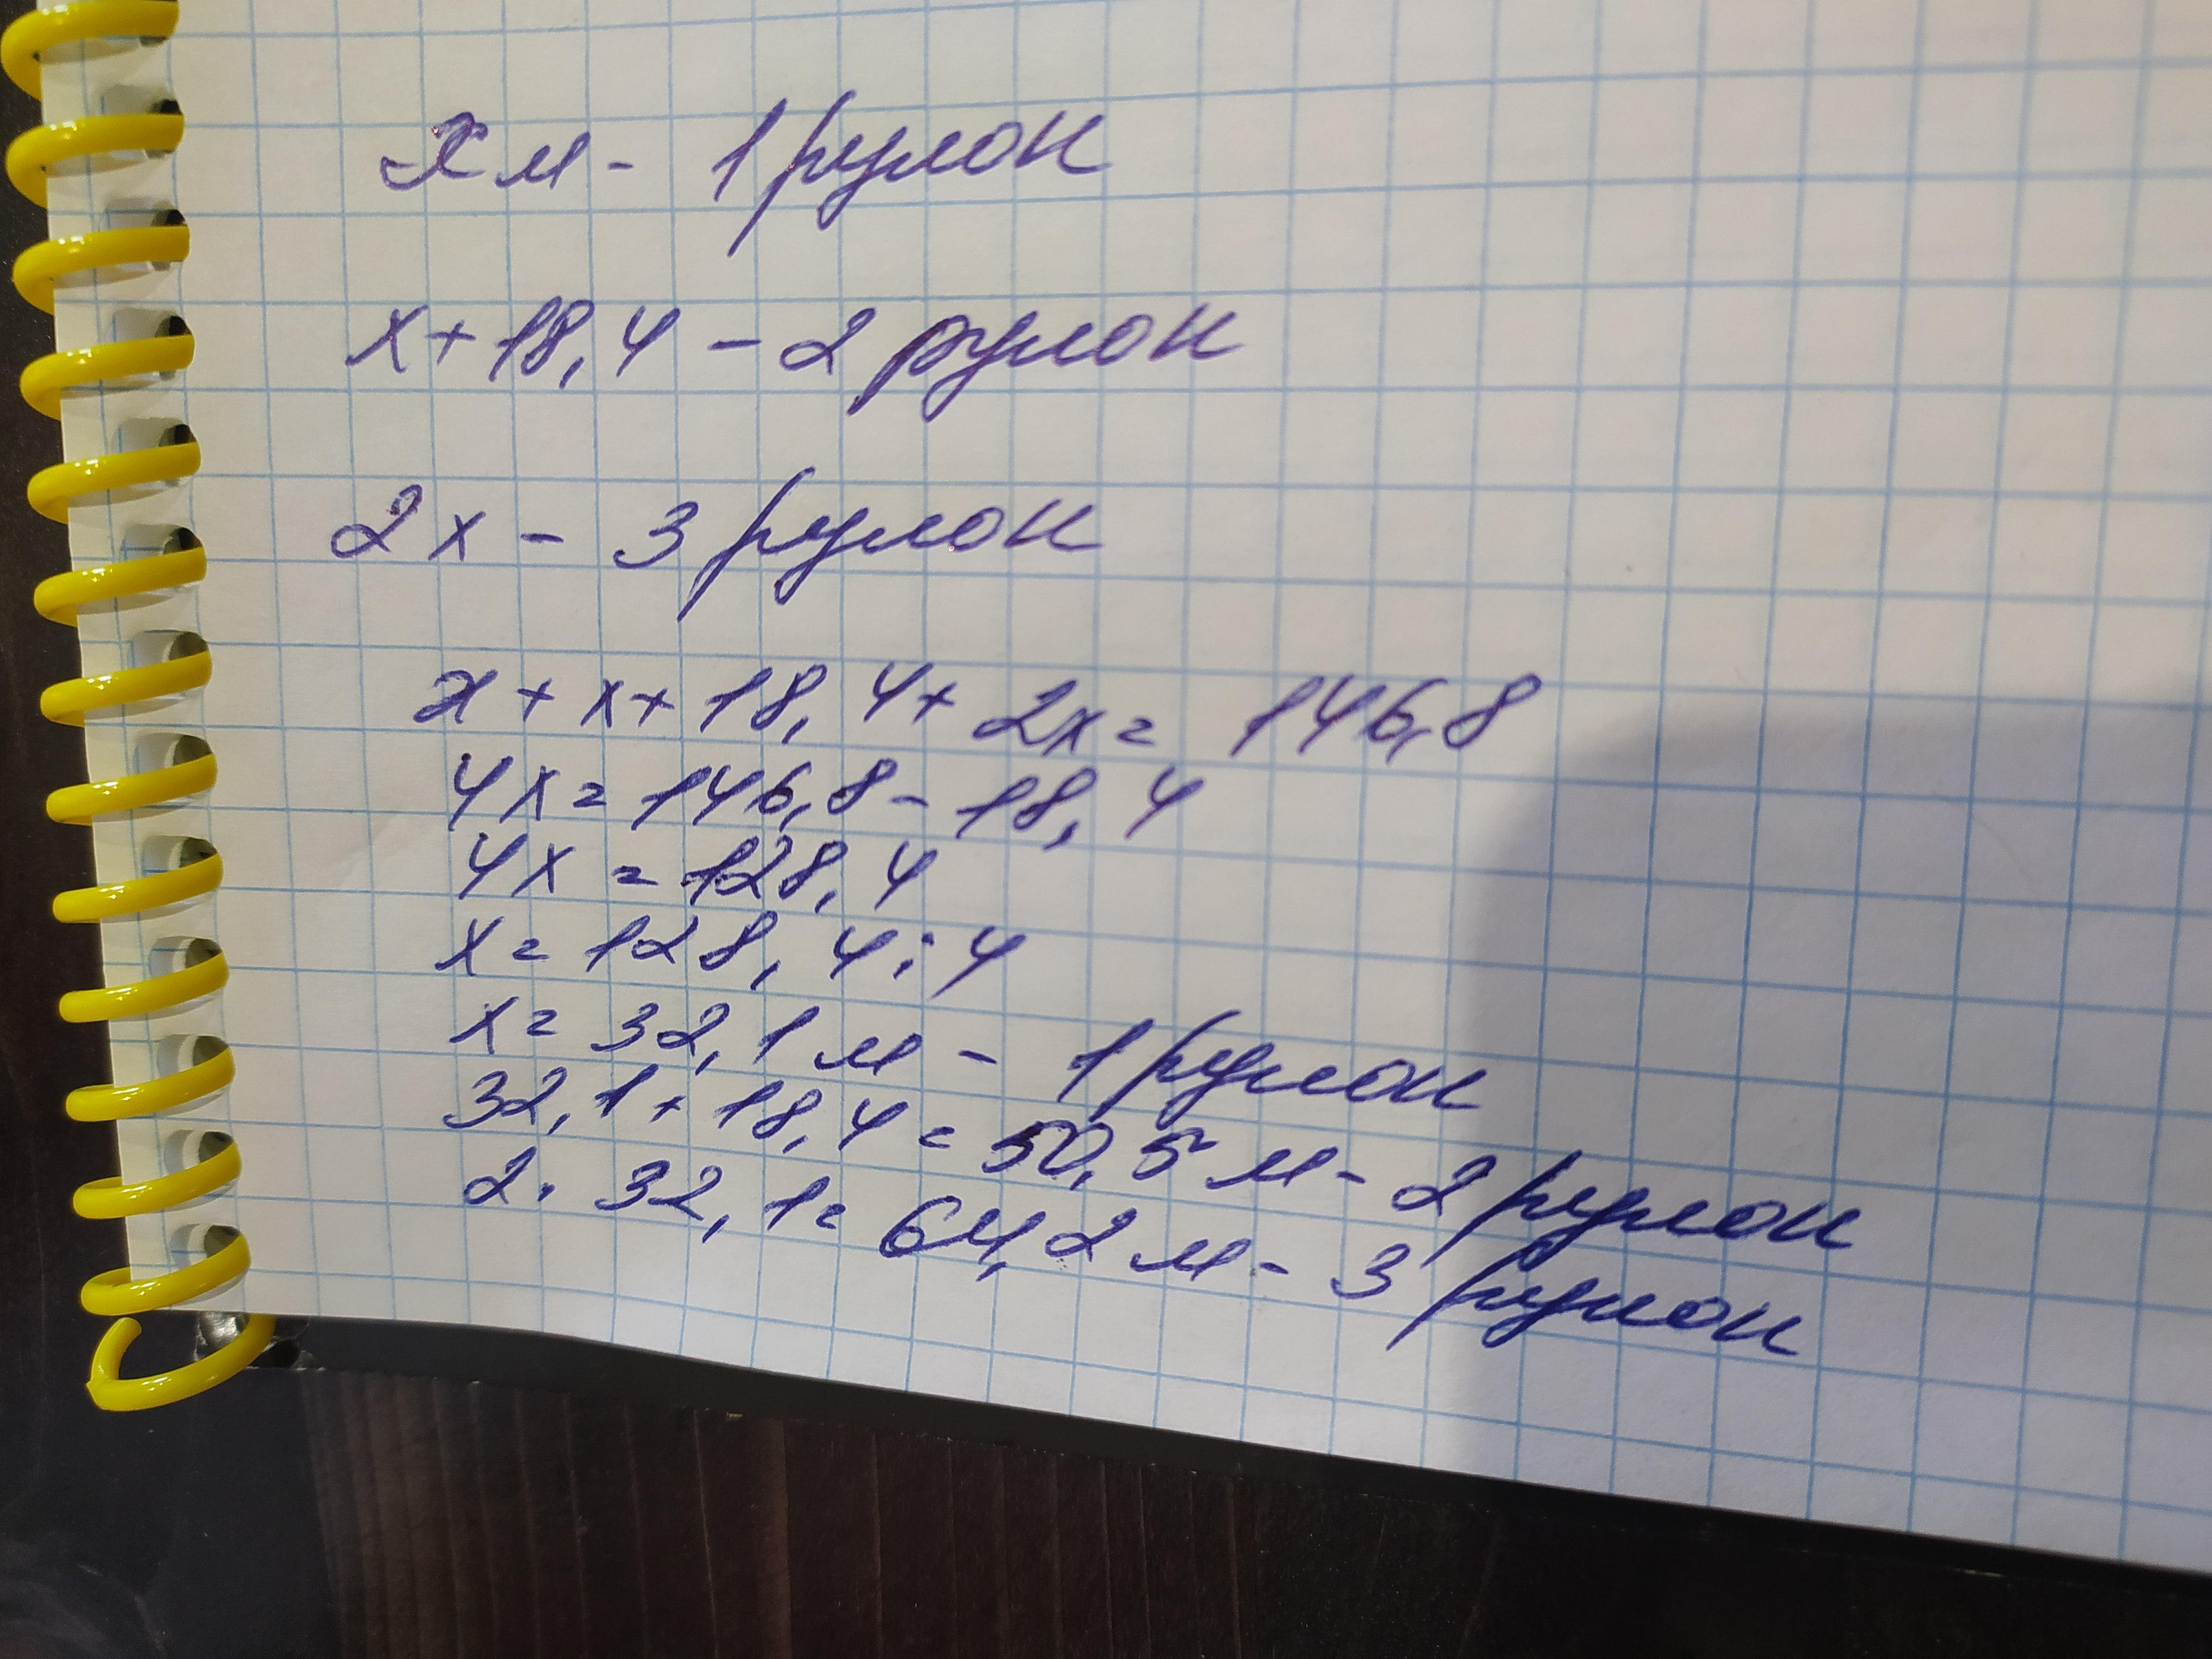 x м - 1 рулон
x + 18,4 - 2 рулон
2x - 3 рулон
x + x + 18,4 + 2x = 146,8
4x = 146,8 - 18,4
4x = 128,4
x = 128,4 : 4
x = 32,1 м - 1 рулон
32,1 + 18,4 = 50,5 м - 2 рулон
2 · 32,1 = 64,2 м - 3 рулон